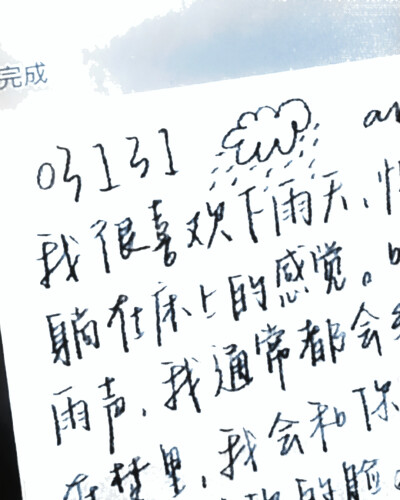 完成
我很喜欢下雨天,
躺在床上的感觉。
雨声,我通常都会
在梦里,我会和你
的脸